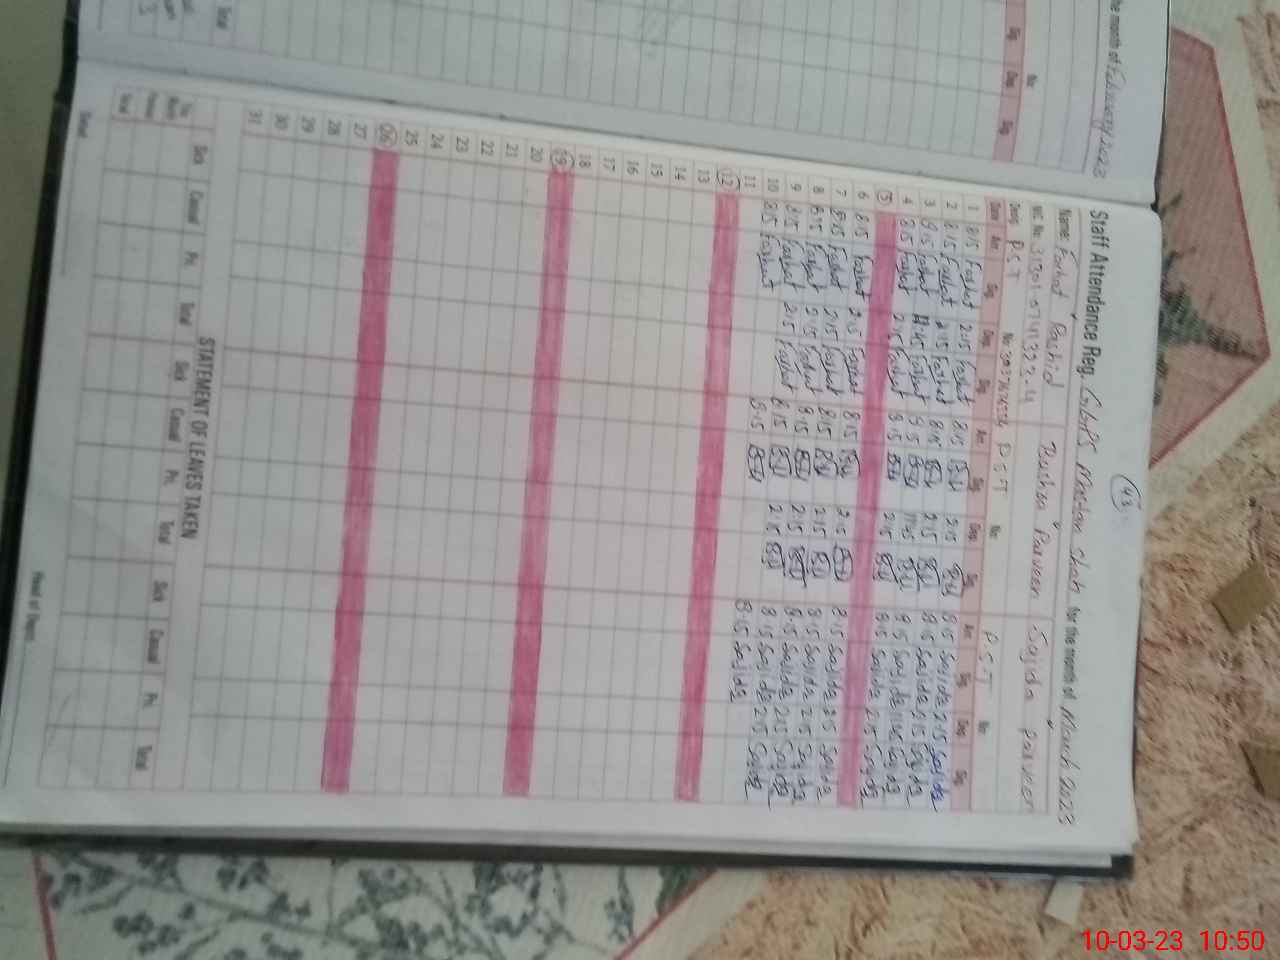 the month of February 2023
43
Staff Attendance Reg. GGPS Maidan Shah for the month of March 2023
Name: Farhat Rashid Bushra Parveen Sajida parveen
NIC No:
Desig. PST No: PST No: PST No:
Date Arr. Sig. Dep. Sig. Arr. Sig. Dep. Sig. Arr. Sig. Dep. Sig.
1 8:15 Farhat 2:15 Farhat 8:15 2:15 8:15 Sajida 2:15 Sajida
2 8:15 Farhat 2:15 Farhat 8:15 2:15 8:15 Sajida 2:15 Sajida
3 8:15 Farhat 11:45 Farhat 8:15 11:45 8:15 Sajida 11:45 Sajida
4 8:15 Farhat 2:15 Farhat 8:15 2:15 8:15 Sajida 2:15 Sajida
5
6 8:15 Farhat 2:15 Farhat 8:15 2:15 8:15 Sajida 2:15 Sajida
7 8:15 Farhat 2:15 Farhat 8:15 2:15 8:15 Sajida 2:15 Sajida
8 8:15 Farhat 2:15 Farhat 8:15 2:15 8:15 Sajida 2:15 Sajida
9 8:15 Farhat 2:15 Farhat 8:15 2:15 8:15 Sajida 2:15 Sajida
10 8:15 Farhat 8:15 8:15 Sajida
11
12
13
14
15
16
17
18
19
20
21
22
23
24
25
26
27
28
29
30
31
STATEMENT OF LEAVES TAKEN
Sick Casual Pri. Total Sick Casual Pri. Total Sick Casual Pri. Total
Total
Head of Deptt.
10-03-23 10:50